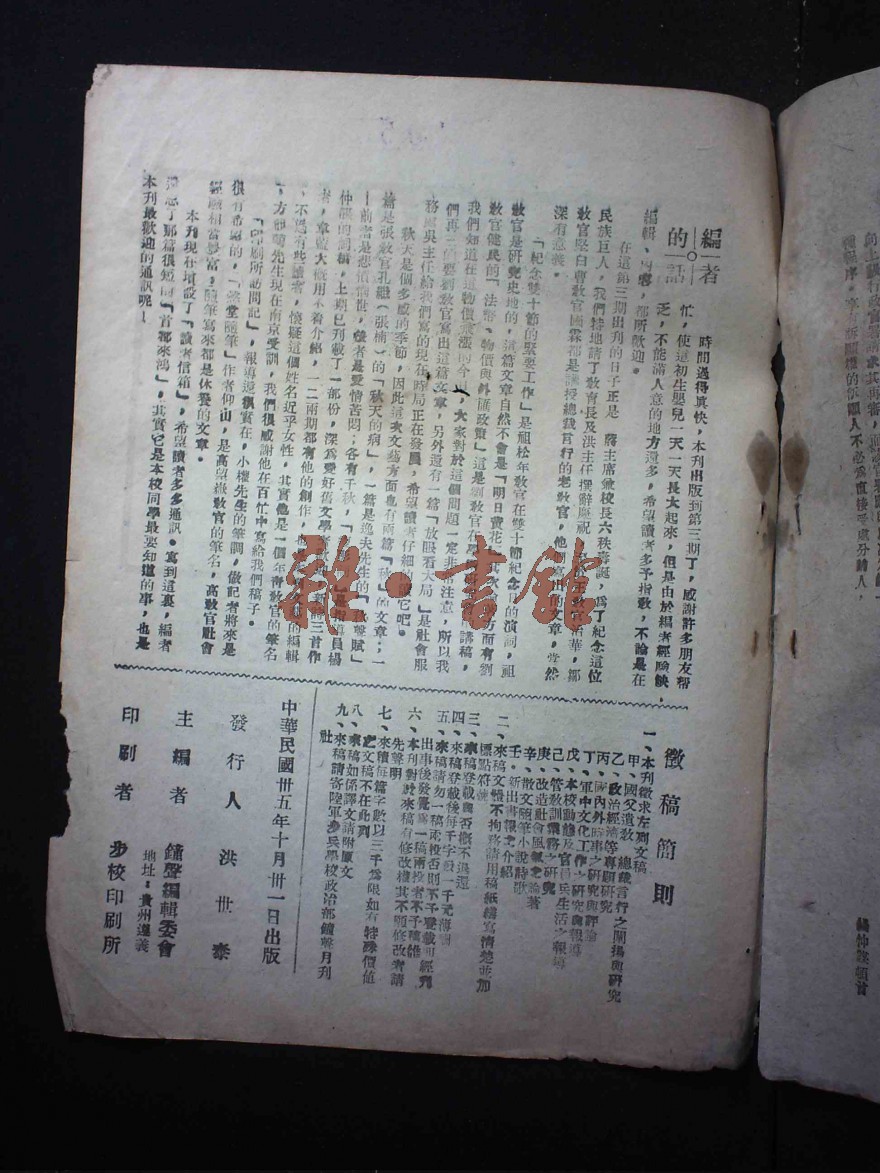 編者的話
時間過得真快，本刊出版到第三期了，感謝許多朋友幫
忙，使這初生嬰兒一天一天長大起來，但是由於編者經驗缺
乏，不能滿人意的地方還多，希望讀者多予指教，不論是在
編輯、內容，都所歡迎。
在這第三期出刊的日子正是 蔣主席兼校長六秩壽誕，為了紀念這位
民族巨人，我們特地請了教育長及洪主任撰辭慶祝
都是講授總裁言行的老教官，他
深有意義。
「紀念雙十節的緊要工作」是祖松年教官在雙十節紀念日的演詞，祖
教官是研究史地的，這篇文章自然不會是「明日黃花」
教官健民的「法幣、物價與外匯政策」這是劉教官在
我們知道在這物價暴漲的今日，大家對於這個問題一定非
注意，所以我
們再三的要劉教官寫出這篇文章，另外還有一篇「放眼看大局」是社會服
務處吳主任給我們寫的現在時局正在發展，希望讀者仔細
它吧。
秋天是個多感的季節，因此這次文藝方面也有兩篇「秋」的文章；一
篇是張教官孔繼（張楠）的「秋天的病」，一篇是逸夫先生的
－前者是悲憤憫世，後者是愛情苦悶；各有千秋，
仲
上期已刊載了一部份，深為愛好舊文學者
新詩三首作
者，章藍大概用不着介紹，一二兩期都有他的創作，也
的編輯
，不過有些讀者，懷疑這個姓名近乎女性，其實他是一個年青教官的筆名
先生現在南京受訓，我們很感謝他在百忙中寫給我們稿子。
「印刷所訪問記」，報導還很實在，小權先生的筆調，做記者將來是
很有希望的，
隨筆」作者仰山，是高望嶽教官的筆名，高教官社會
經驗相當豐富，隨筆寫來都是休養的文章。
本刊現在增設了「讀者信箱」，希望讀者多多通訊。寫到這裏，編者
還忘了那篇很短的「首都來鴻」，其實它是本校同學最要知道的事，也是
本刊最歡迎的通訊呢！
徵稿簡則
一、本刊徵求左列文稿
甲、國父遺教、總裁言行之闡揚與研究
乙、政治經濟等專題研究
丙、國內外時事之研究與評論
丁、軍中文化工作之研究與報導
戊、本校動態及官員兵生活之報導
己、管教訓練務之研究
庚、改造社會風氣之論著
辛、散文隨筆小說詩歌
壬、新出書報之介紹
二、來稿文體不拘務請用稿紙繕寫清楚並加
標點符號
三、來稿登載與否概不退還
四、來稿登載後每千字致一千元薄酬
五、來稿請勿一稿兩投否則不予登載如經刊
出事後發覺為一稿兩投者不予致酬
六、本刊對於來稿有修改權其不願修改者請
先聲明
七、來稿每篇字數以三千為限如有特殊價值
之文稿不在此列
八、來稿如係譯文請附原文
九、來稿請寄陸軍步兵學校政治部鐘聲月刊
社
中華民國卅五年十月卅一日出版
發行人 洪世泰
主編者 鐘聲編輯委會
地址：貴州遵義
印刷者 步校印刷所
雜·書館